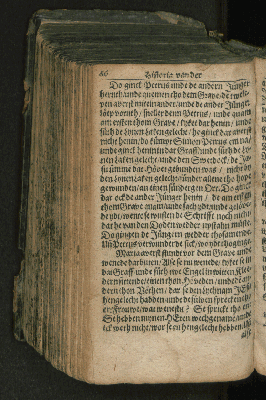 86 Historia van der
Do ginck Petrus unde de ander Jünger
henuth / unde quemen tho dem Grave / de twe le-
pen averst mit einander / unde de ander Jünger
löep vorhen / sneller denn Petrus / unde quam
am ersten thom Grave / kyket dar henin / unde
süth de linnen laken gelecht / he ginck dar averst
nicht henin / do kümpt Simon Petrus em na /
unde ginck henin dat Graff / unde süth de lin-
nen laken gelecht / unde den Sweetdock / de Je-
su ümme dat Hövet gebunden was / nicht by
den linnen laken gelecht / sünder alleine tho hope
gewunden / an einen sünderigen Ort. Do ginck
dar ock de ander Jünger henin / de am ersten
thom Grave quam / unde sach ydt unde gelövede
ydt / wente se wusten de Schrifft noch nicht /
dat he van den Doden wedder upstahn müste.
Do gingen de Jüngern wedder thosamende.
Un Petrus verwunderde sick / wo ydt thoginge.
Maria averst stundt vor dem Grave unde
wenede dar buten / Alse se nu wenede / kyket se in
dat Graff unde süth twe Engel in witten Klederen
dern sitten de / einen thon Höveden / unde de an-
dern thon Vöthen / dar se den lychnam Jesu
hen gelecht hadden / unde de sülven spreken tho
er: Frouwe / wat wenestu? Se sprickt tho en:
Se hebben mynen HEren wech genamen / unde
ick weth nicht / wor se en hen gelecht hebben.
alse